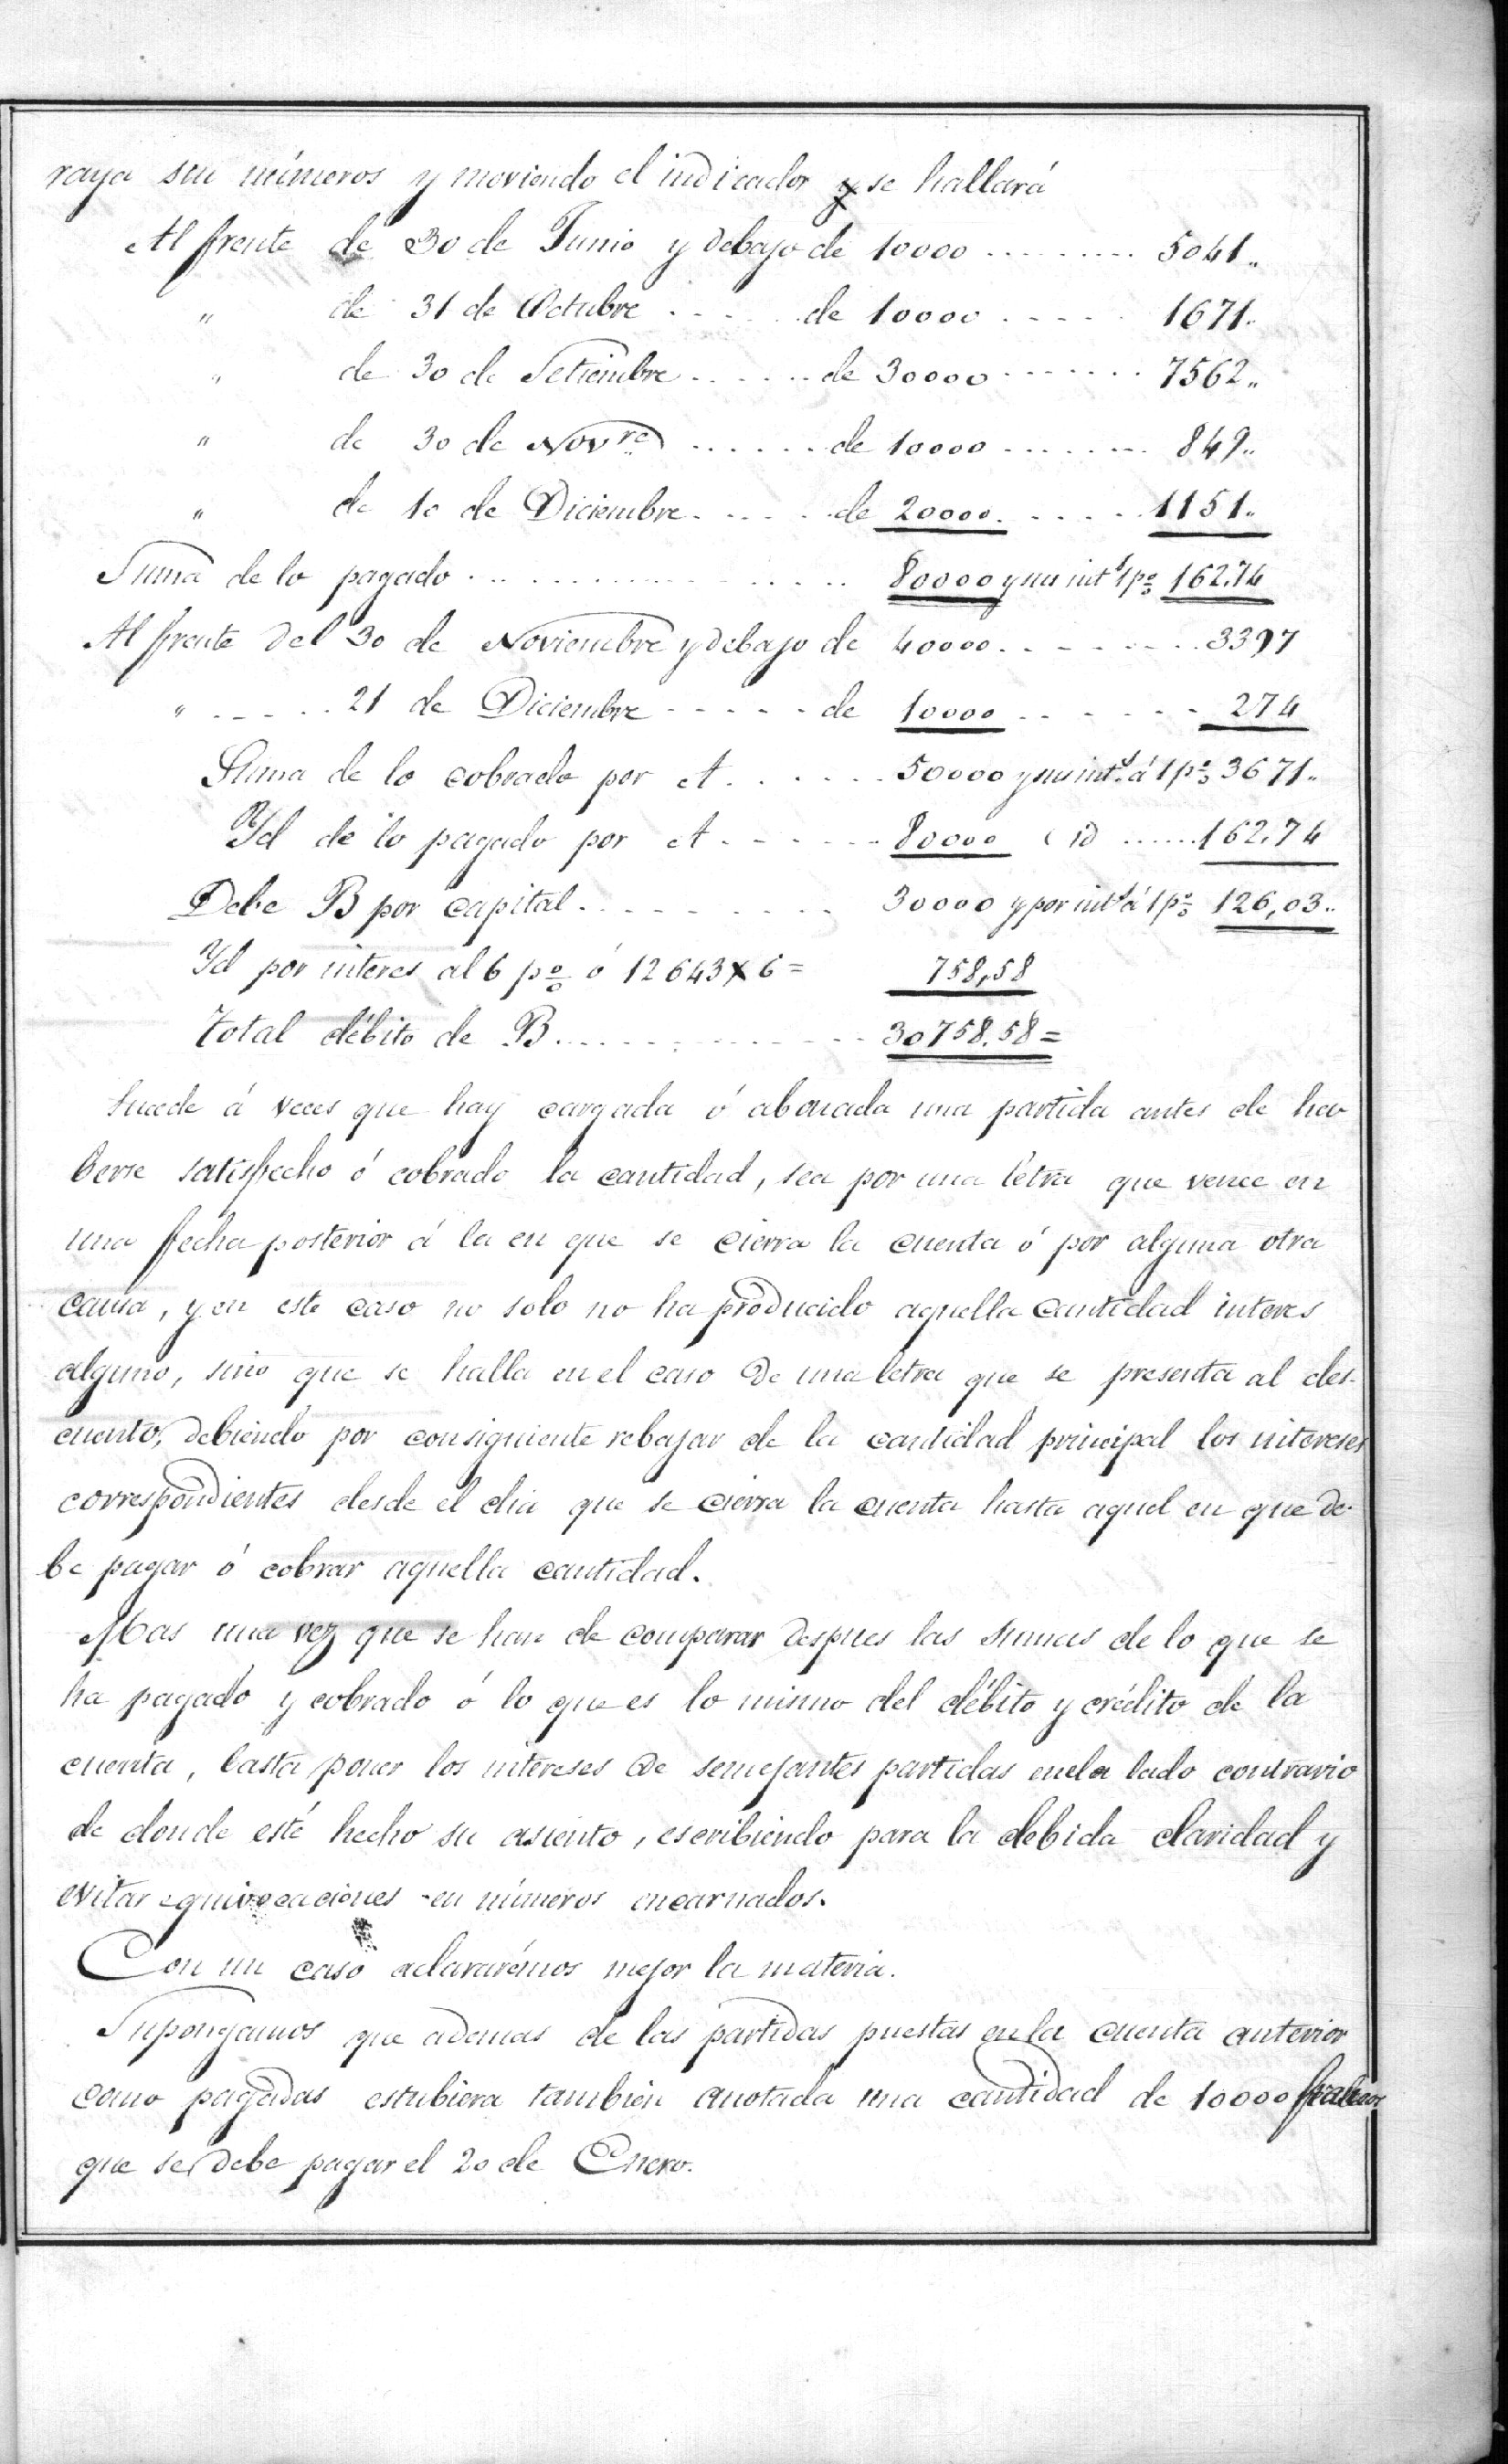 raya sin números y moviendo el indicador y se hallará
Al frente de 30 de Junio y debajo de 10000 ......... 5041„
„ de 31 de Octubre ..... de 10000 ..... 1671„
„ de 30 de Setiembre ...... de 30000 ....... 7562„
„ de 30 de Novre ...... de 10000 ........ 849„
„ de 10 de Diciembre ..... de 20000 ..... 1151„
Suma de lo pagado ................ 80000 y sus ints 1 p% 162.74
Al frente del 30 de Noviembre y debajo de 40000 ........ 3397
„ ..... 21 de Diciembre ..... de 10000 ....... 274
Suma de lo cobrado por A ...... 50000 y sus ints á 1 p% 3671„
Yd de lo pagado por A ...... 80000 ( id ...... 162,74
Debe B por capital ......... 30000 y por ints á 1 p% 126,03„
Yd por interes al 6 p% ó 12643 x 6 = 758,58
Total débito de B ............. 30758.58 =
Sucede á veces que hay cargada ó abonada una partida antes de ha-
berse satisfecho ó cobrado la cantidad, sea por una letra que vence en
una fecha posterior á la en que se cierra la cuenta ó por alguna otra
causa, y en este caso no solo no ha producido aquella cantidad interes
alguno, sino que se halla en el caso de una letra que se presenta al des-
cuento, debiendo por consiguiente rebajar de la cantidad principal los intereses
correspondientes desde el dia que se cierra la cuenta hasta aquel en que de-
be pagar ó cobrar aquella cantidad.
Mas una vez que se han de comparar despues las sumas de lo que se
ha pagado y cobrado ó lo que es lo mismo del débito y crédito de la
cuenta, basta poner los intereses de semejantes partidas en el lado contrario
de donde esté hecho su asiento, escribiendo para la debida claridad y
evitar equivocaciones en números encarnados.
Con un caso aclararémos mejor la materia.
Supongamos que ademas de las partidas puestas en la cuenta anterior
como pagadas estubiera tambien anotada una cantidad de 10000
que se debe pagar el 20 de Enero.